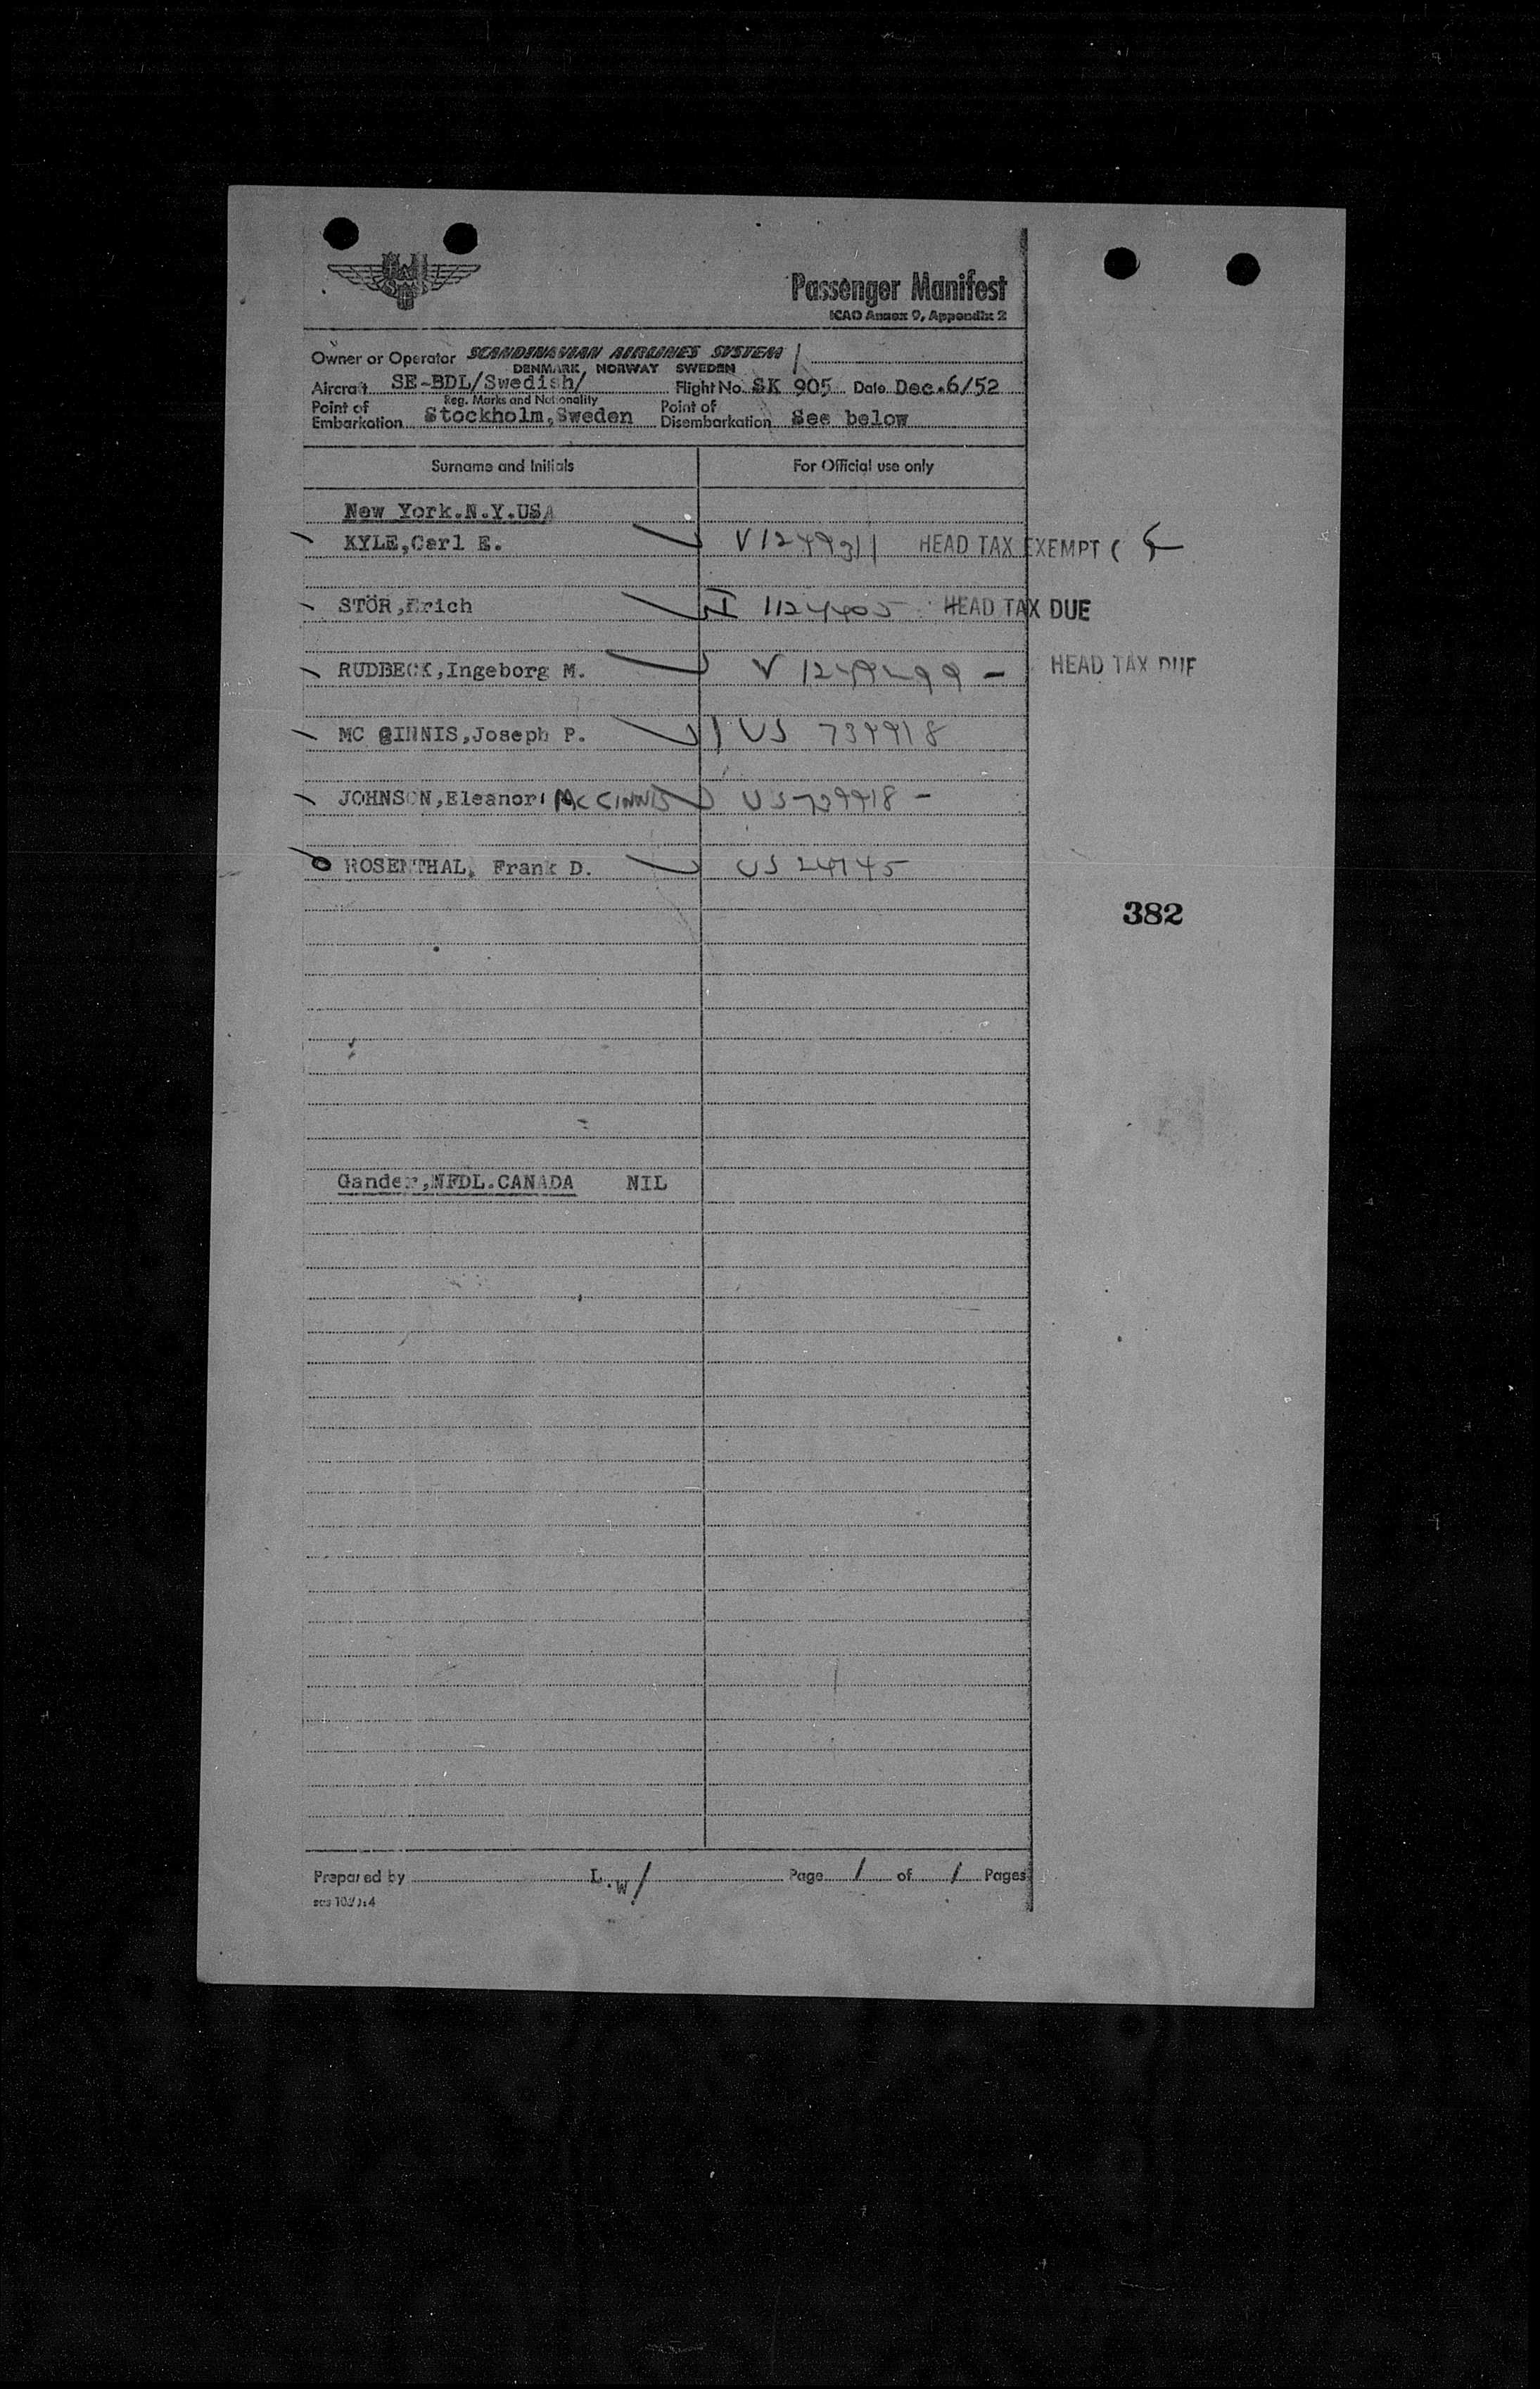 Passenger Manifest
ICAO Annex 9, Appendix 2
Owner or Operator SCANDINAVIAN AIRLINES SYSTEM
DENMARK, NORWAY SWEDEN
Aircraft SE-BDL/Swedish/ Flight No. SK 905 Date Dec.6/52
Reg. Marks and Nationality
Point of Embarkation Stockholm,Sweden Point of Disembarkation See below
Surname and Initials For Official use only
New York.N.Y.USA
KYLE,Carl E. V 1249311 HEAD TAX EXEMPT (
STÖR,Erich I 1124405 HEAD TAX DUE
RUDBECK,Ingeborg M. V 1249299 - HEAD TAX DUE
MC GINNIS,Joseph P. US 739918
JOHNSON,Eleanor MC GINNIS US 739918 -
ROSENTHAL, Frank D. US 24745
382
Gander,NFDL.CANADA NIL
Prepared by L.W/ Page 1 of 1 Pages